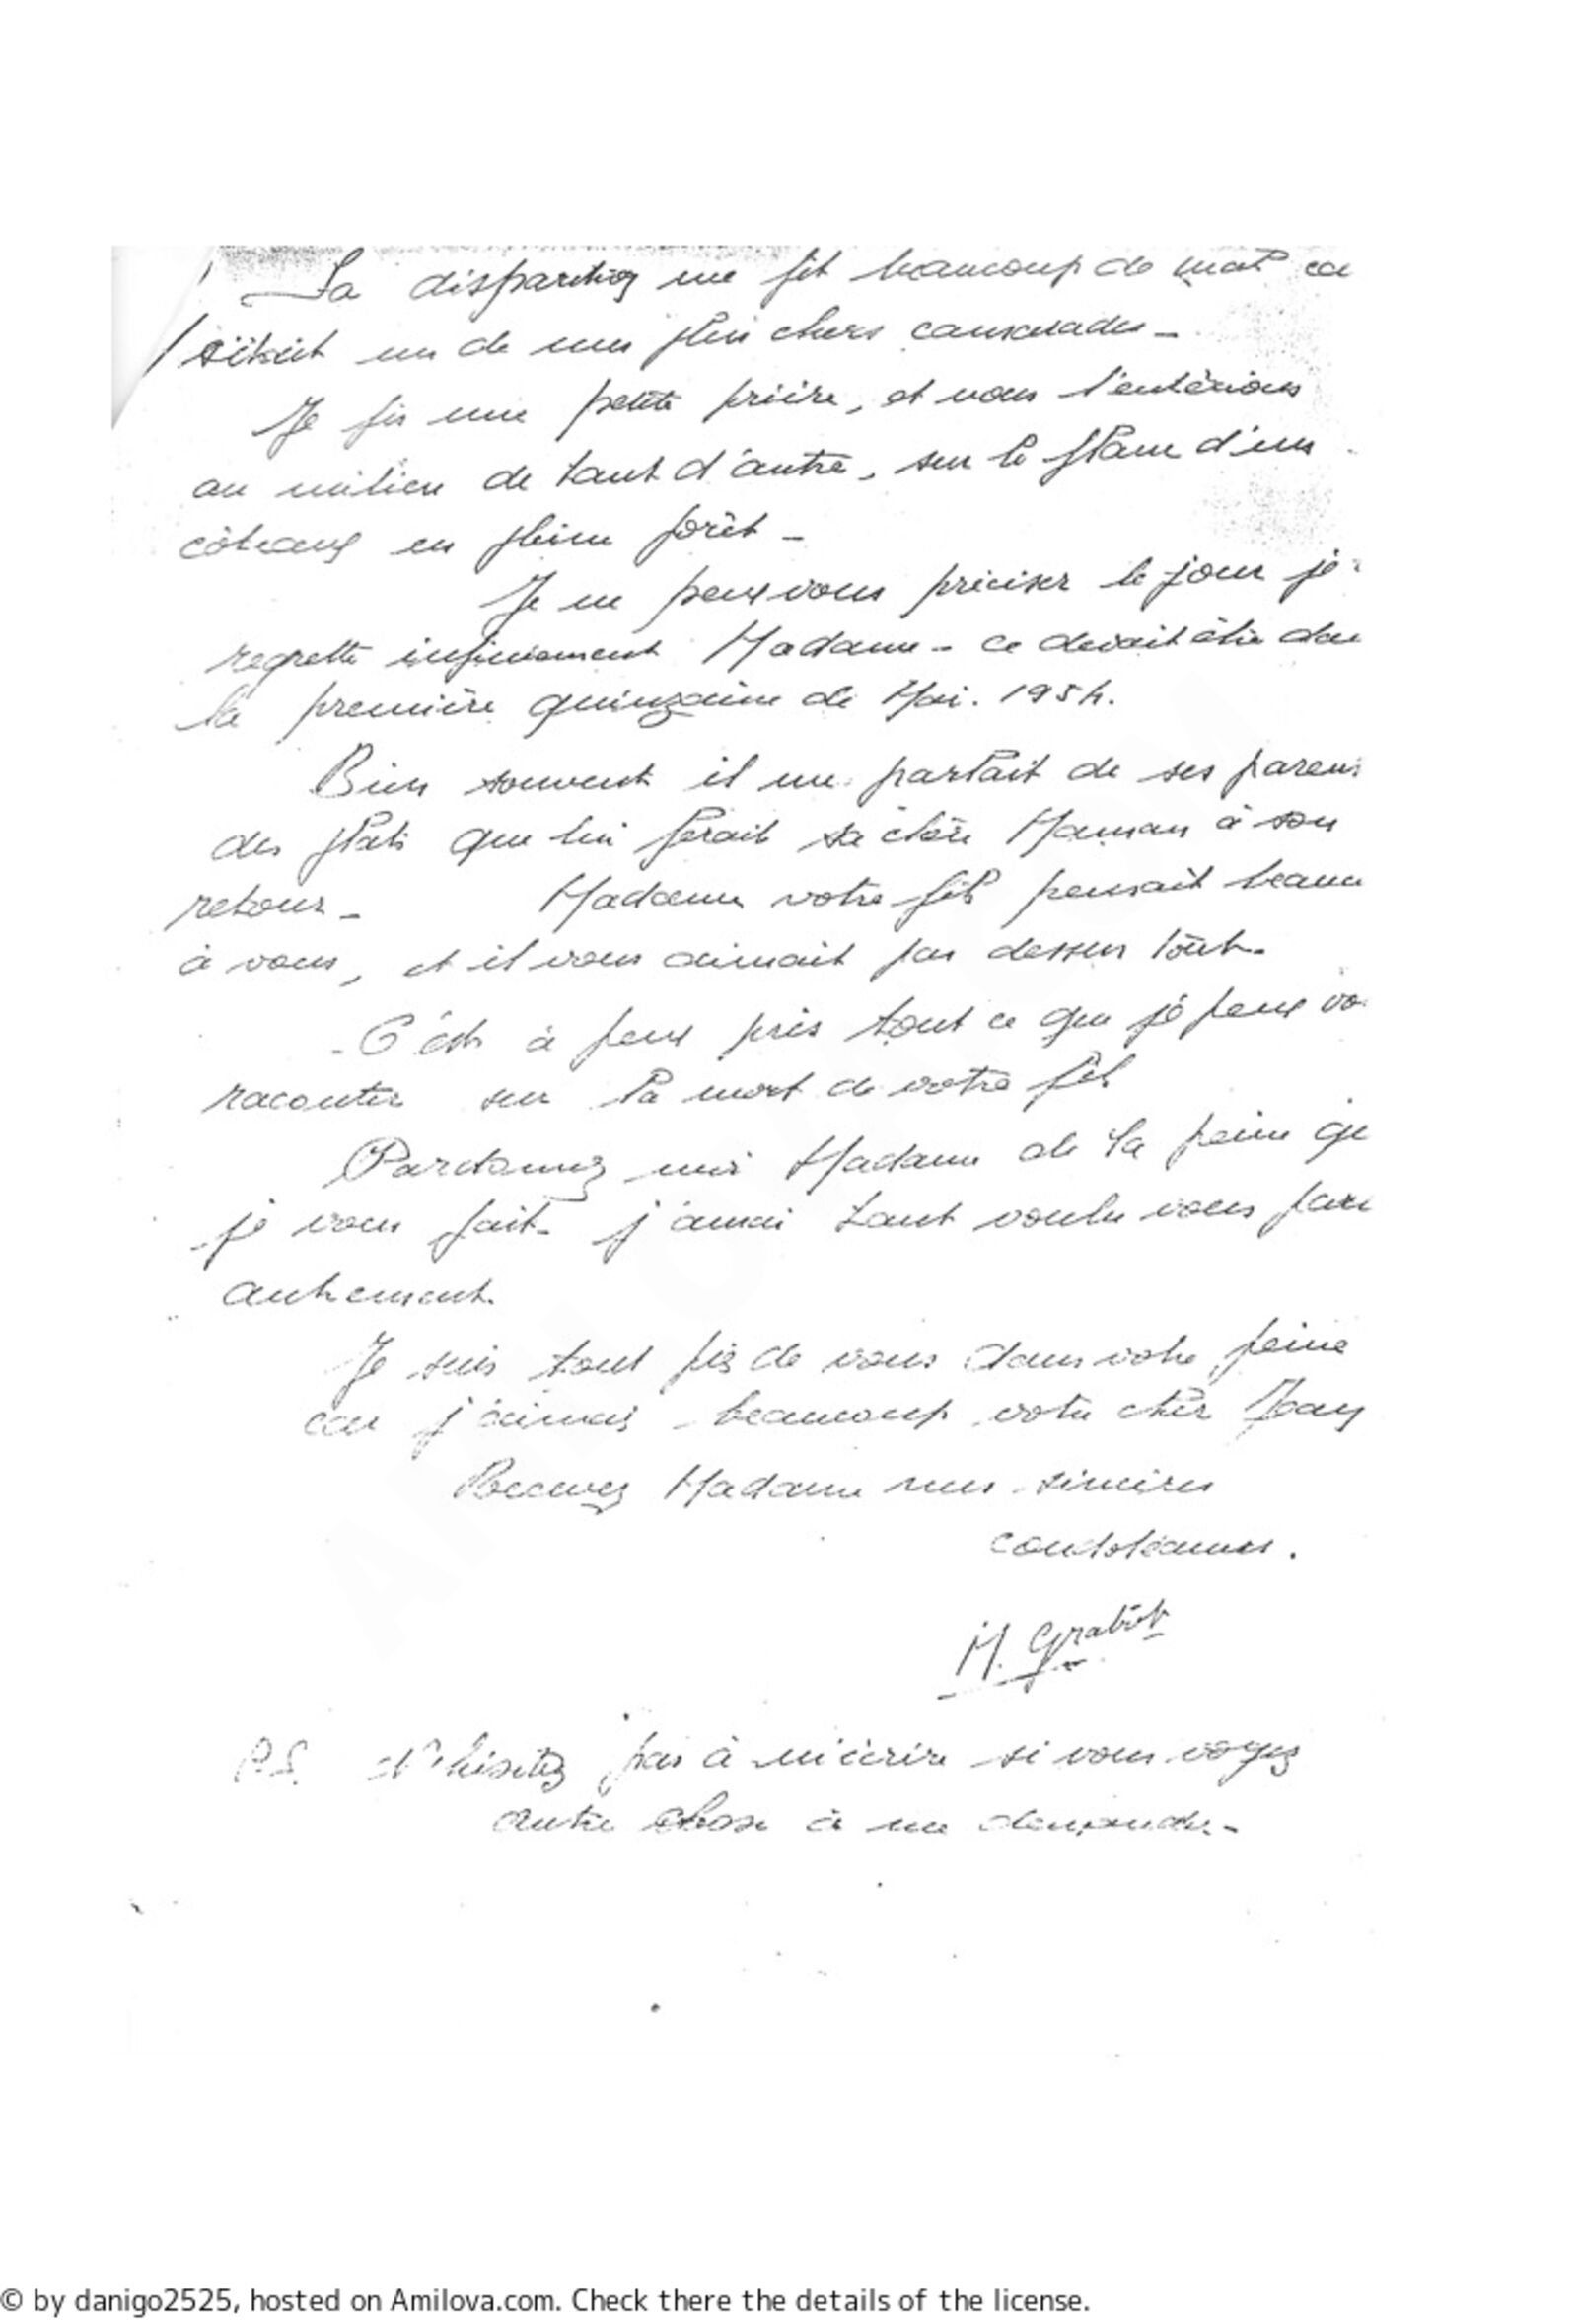 Sa disparition me fit beaucoup de mal car
s'était un de mes plus chers camarades -
Je fis une petite prière, et nous l'entérions
au milieu de tant d'autre, sur le flanc d'un
côteaux en pleine forêt -
Je ne peux vous préciser le jour je
regrette infiniement Madame - ce devait être dan
la première quinzaine de Mai. 1954.
Bien souvent il me parlait de ses parens
des plats que lui ferait sa chère Maman à son
retour - Madame votre fils pensait beauc
à vous, et il vous aimait par dessus tout.
- C'est à peux près tout ce que je peux vo
raconter sur la mort de votre fils
Pardonnez moi Madame de la peine que
je vous fait - j'aurai tant voulu vous faire
autrement.
Je suis tout près de vous dans votre peine
car j'aimais beaucoup votre cher Jean
Recevez Madame mes sincères
condoléances.
M. Grabot
P.S. N'hésitez pas à m'écrire si vous voyez
autre chose à me demander. -
© by danigo2525, hosted on Amilova.com. Check there the details of the license.